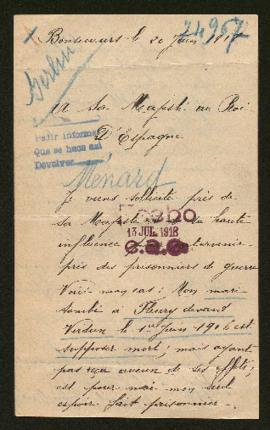 24957
Bonsecours le 20 Juin
Berlin
A Sa Majesté au Roi
D'Espagne
Pedir informes
Que se hace así
Devolver
Menard
Je viens solliciter près de
Sa Majesté sa haute
influence
13 JUL. 1918
près des prisonniers de guerre
Voici mon cas : Mon mari
tombé à Fleury devant
Verdun le 1er Juin 1916 est
supposer mort, mais ayant
pas reçu aucun de ses effets,
est pour moi mon seul
espoir fait prisonnier